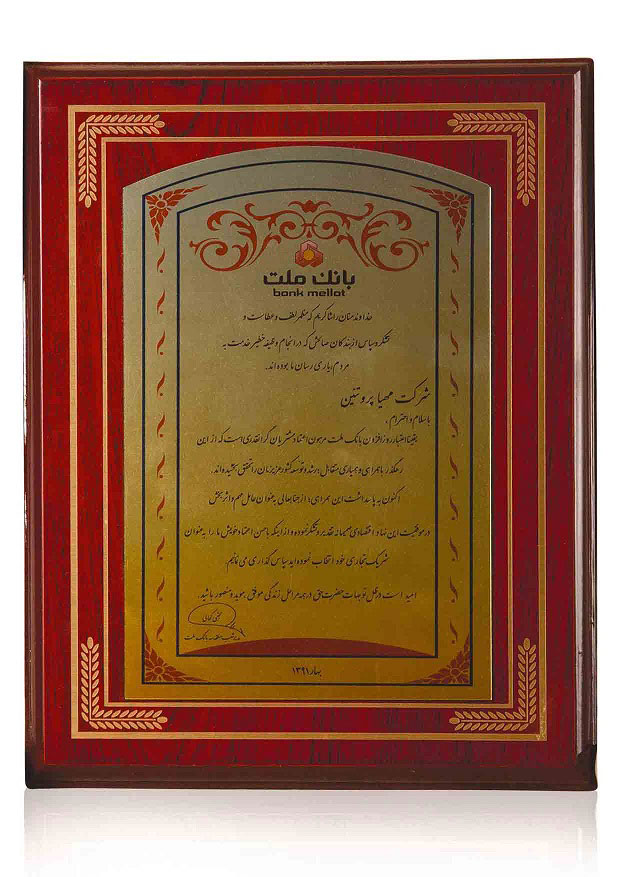 بانک ملت
bank mellat
خداوند منان را شاکریم که مظهر لطف و عطاست و
تشکر و سپاس از بندگان صالحش که در انجام وظیفه خطیر خدمت به
مردم، یاری رسان ما بوده‌اند.
شرکت مهیا پروتئین
با سلام و احترام،
یقینا اعتبار روزافزون بانک ملت مرهون اعتماد مشتریان گرانقدری است که از این
رهگذر با همراهی و همیاری متقابل، رشد و توسعه کشور عزیزمان را تحقق بخشیده‌اند.
اکنون به پاسداشت این همراهی، از جنابعالی به عنوان عامل مهم و اثربخش
در موفقیت این نهاد اقتصادی صمیمانه تقدیر و تشکر نموده و از اینکه با حسن اعتماد خویش ما را به عنوان
شریک تجاری خود انتخاب نموده‌اید سپاس گذاری می نمائیم.
امید است در ظل توجهات حضرت حق در همه مراحل زندگی موفق، موید و منصور باشید.
بانک ملت
بهار ۱۳۹۱